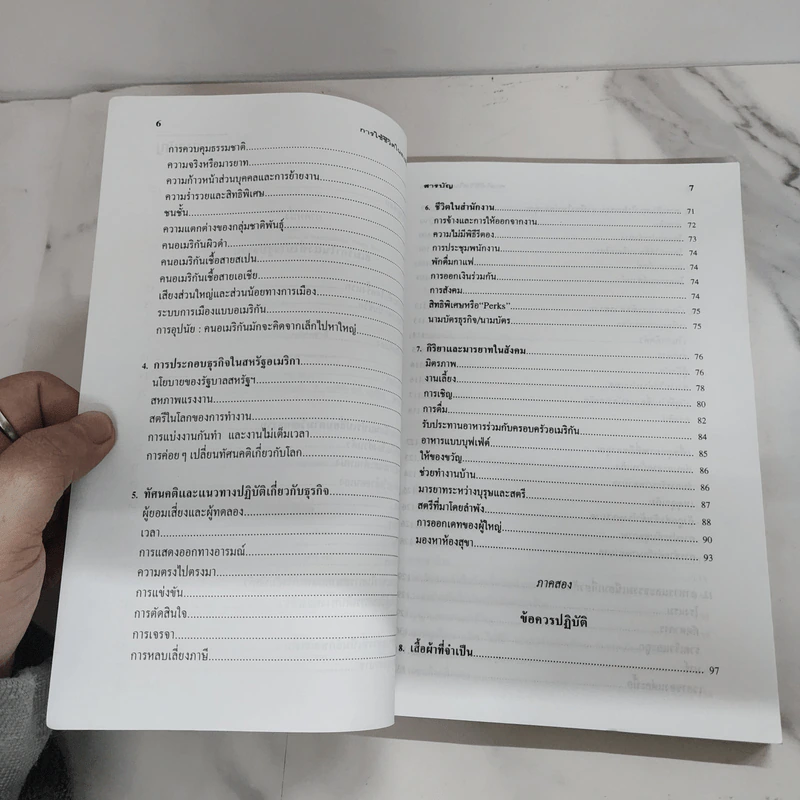 6
การใช้ชีวิตใน
การควบคุมธรรมชาติ
ความจริงหรือมารยาท
ความก้าวหน้าส่วนบุคคลและการย้ายงาน
ความร่ำรวยและสิทธิพิเศษ
ชนชั้น
ความแตกต่างของกลุ่มชาติพันธุ์
คนอเมริกันผิวดำ
คนอเมริกันเชื้อสายสเปน
คนอเมริกันเชื้อสายเอเชีย
เสียงส่วนใหญ่และส่วนน้อยทางการเมือง
ระบบการเมืองแบบอเมริกัน
การอุปนัย : คนอเมริกันมักจะคิดจากเล็กไปหาใหญ่
4. การประกอบธุรกิจในสหรัฐอเมริกา
นโยบายของรัฐบาลสหรัฐฯ
สหภาพแรงงาน
สตรีในโลกของการทำงาน
การแบ่งงานกันทำ และงานไม่เต็มเวลา
การค่อยๆ เปลี่ยนทัศนคติเกี่ยวกับโลก
5. ทัศนคติและแนวทางปฏิบัติเกี่ยวกับธุรกิจ
ผู้ยอมเสี่ยงและผู้ทดลอง
เวลา
การแสดงออกทางอารมณ์
ความตรงไปตรงมา
การแข่งขัน
การตัดสินใจ
การเจรจา
การหลบเลี่ยงภาษี
สารบัญ 7
6. ชีวิตในสำนักงาน 71
การจ้างและการให้ออกจากงาน 72
ความไม่มีพิธีรีตอง 73
การประชุมพนักงาน 74
พักดื่มกาแฟ 74
การออกเงินร่วมกัน 74
การสังคม 74
สิทธิพิเศษหรือ“Perks” 75
นามบัตรธุรกิจ/นามบัตร 75
7. กิริยาและมารยาทในสังคม 76
มิตรภาพ 76
งานเลี้ยง 78
การเชิญ 80
การดื่ม 82
รับประทานอาหารร่วมกับครอบครัวอเมริกัน 84
อาหารแบบบุฟเฟ่ต์ 85
ให้ของขวัญ 86
ช่วยทำงานบ้าน 86
มารยาทระหว่างบุรุษและสตรี 87
สตรีที่มาโดยลำพัง 88
การออกเดทของผู้ใหญ่ 90
มองหาห้องสุขา 93
ภาคสอง
ข้อควรปฏิบัติ
8. เสื้อผ้าที่จำเป็น 97